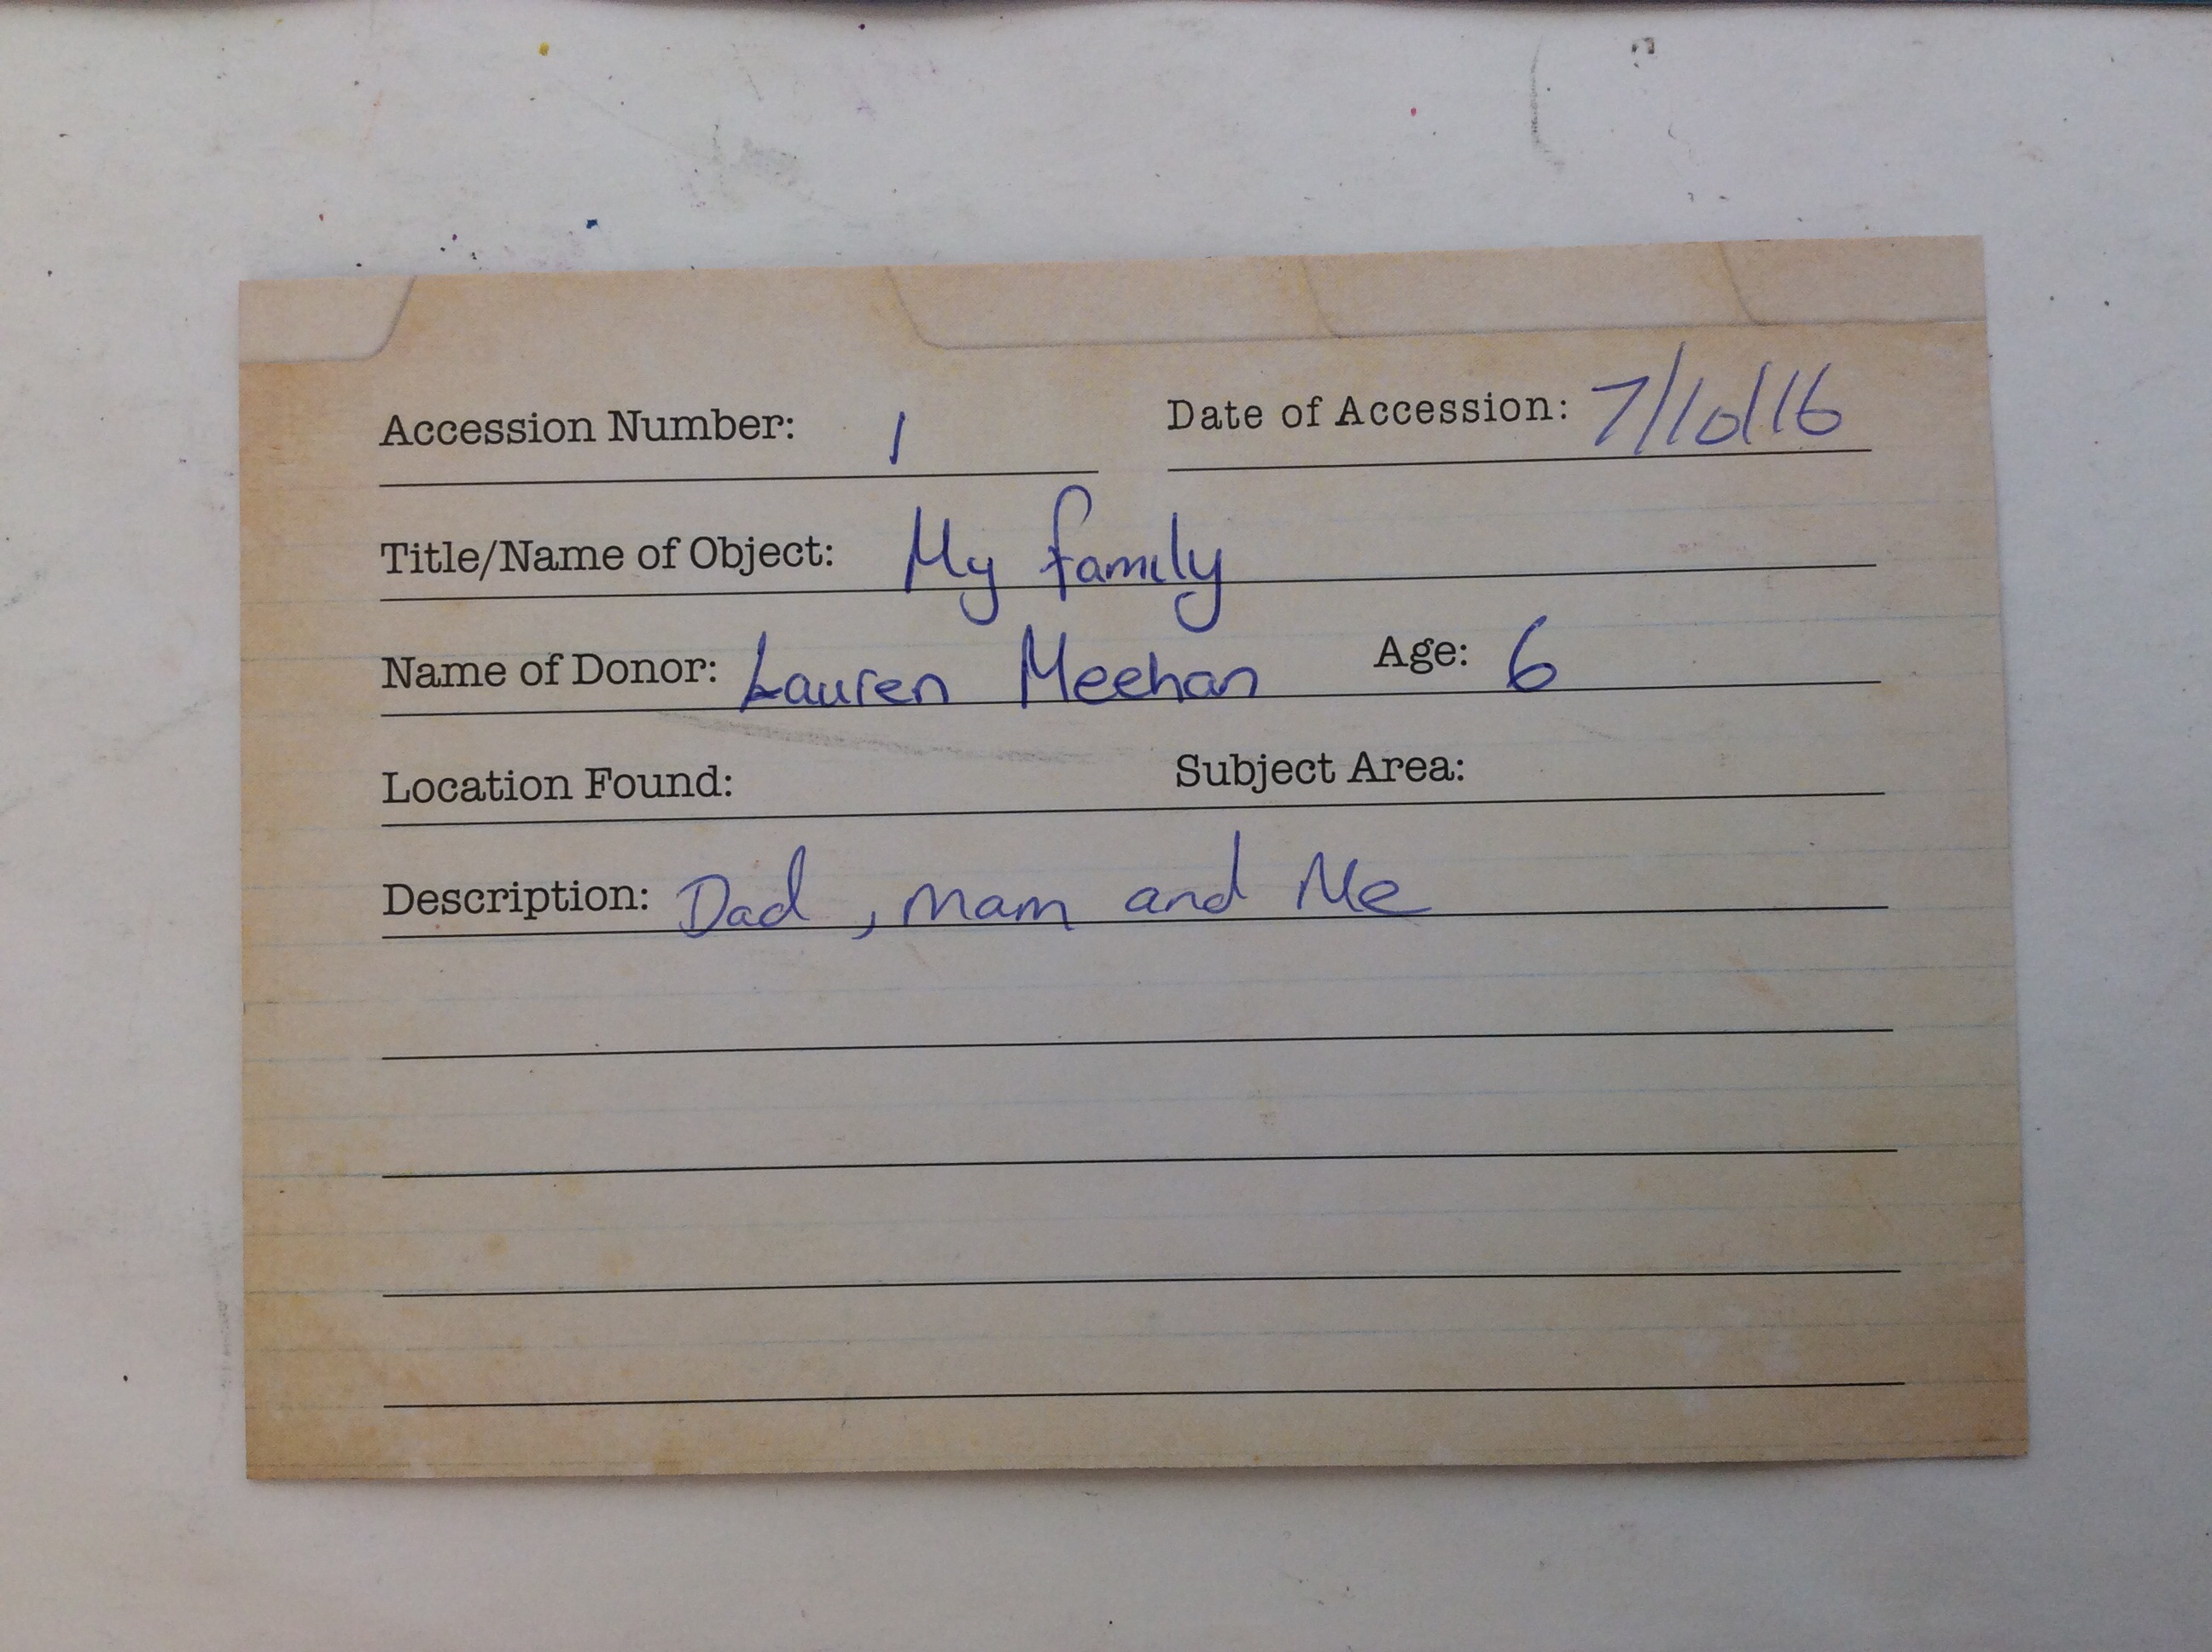 Accession Number: 1 Date of Accession: 7/10/16
Title/Name of Object: My family
Name of Donor: Lauren Meehan Age: 6
Location Found: Subject Area:
Description: Dad, Mam and Me